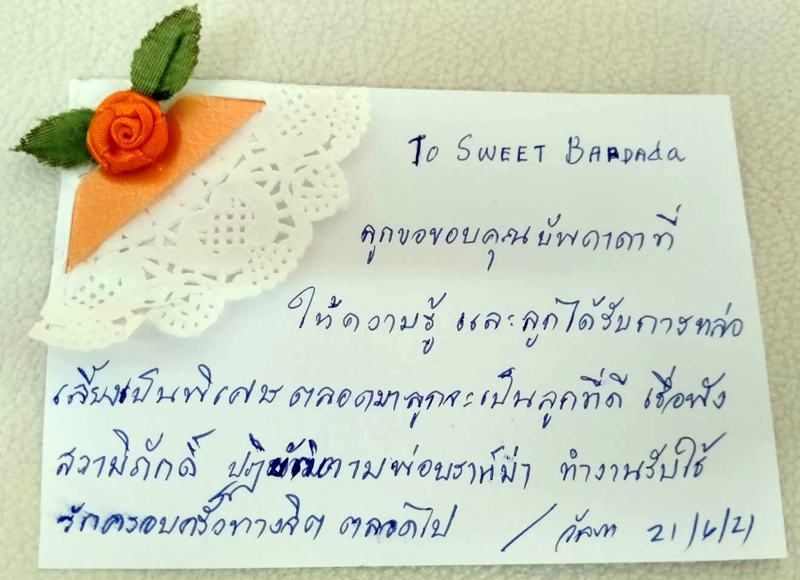 To SWEET BAPDAda
ลูกขอขอบคุณบัพดาดาที่
ให้ความรู้ และลูกได้รับการหล่อ
เลี้ยงเป็นพิเศษตลอดมาลูกจะเป็นลูกที่ดี เชื่อฟัง
สวามิภักดิ์ ปฏิบัติตามพ่อบราห์ม่า ทำงานรับใช้
รักครอบครัวทางจิต ตลอดไป / 21/4/21